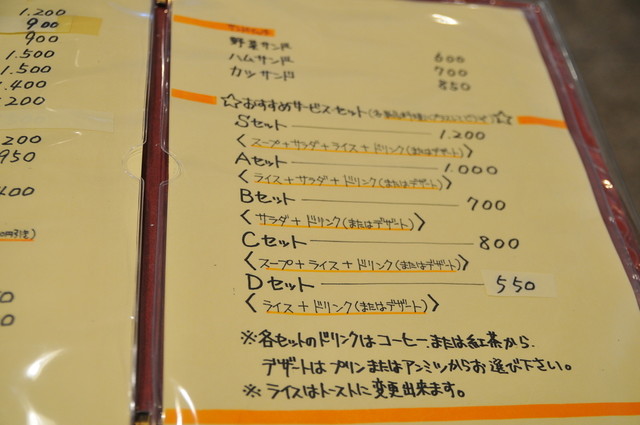 1.200
900
900
1.500
1.500
.400
.200
200
950
400
野菜サンド 600
ハムサンド 700
カツサンド 850
☆おすすめサービスセット
Sセット 1.200
〈スープ+サラダ+ライス+ドリンク(またはデザート)〉
Aセット 1.000
〈ライス+サラダ+ドリンク(またはデザート)〉
Bセット 700
〈サラダ+ドリンク(またはデザート)〉
Cセット 800
〈スープ+ライス+ドリンク(またはデザート)〉
Dセット 550
〈ライス+ドリンク(またはデザート)〉
※各セットのドリンクはコーヒーまたは紅茶から、
デザートはプリンまたはアンミツからお選び下さい。
※ライスはトーストに変更出来ます。